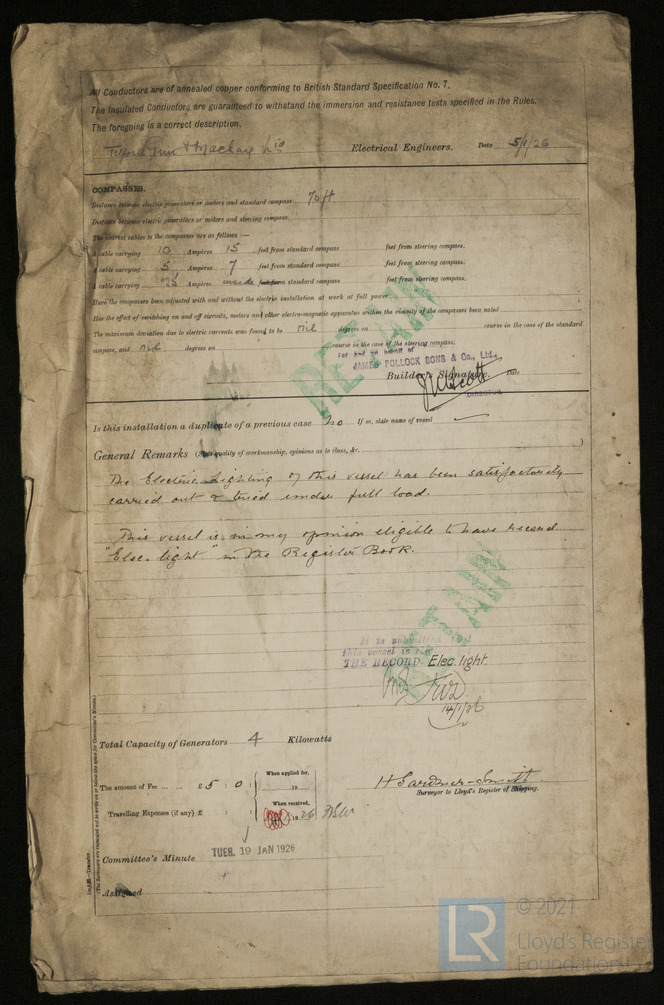 All Conductors are of annealed copper conforming to British Standard Specification No. 7.
The Insulated Conductors are guaranteed to withstand the immersion and resistance tests specified in the Rules.
The foregoing is a correct description.
Electrical Engineers. Date 5/1/26
COMPASSES.
Distance between electric generators or motors and standard compass 70 ft
Distance between electric generators or motors and steering compass
The nearest cables to the compasses are as follows:—
A cable carrying 10 Ampères 15 feet from standard compass feet from steering compass.
A cable carrying 5 Ampères 7 feet from standard compass feet from steering compass.
A cable carrying Ampères inside from standard compass feet from steering compass.
Have the compasses been adjusted with and without the electric installation at work at full power
Has the effect of switching on and off circuits, motors and other electro-magnetic apparatus within the vicinity of the compasses been noted
The maximum deviation due to electric currents was found to be nil degrees on course in the case of the standard
compass, and nil degrees on course in the case of the steering compass.
For and on behalf of
JAMES POLLOCK SONS & Co., Ltd.,
Builder's Signature. Date
Director
RETAIN
Is this installation a duplicate of a previous case No If so, state name of vessel
General Remarks (State quality of workmanship, opinions as to class, &c.)
The Electric Lighting of this vessel has been satisfactorily
carried out & tried under full load.
This vessel is in my opinion eligible to have record
"Elec. light" in the Register Book.
RETAIN
It is submitted
this vessel is
THE RECORD Elec. light.
14/1/26
Total Capacity of Generators 4 Kilowatts
The amount of Fee ... ... £ 5 : 0 :
When applied for,
19
Travelling Expenses (if any) £ : :
When received,
19 26
H Gardner-Smith.
Surveyor to Lloyd's Register of Shipping.
Committee's Minute TUES. 19 JAN 1926
Assigned
(The Surveyors are requested not to write on or below the space for Committee's Minute.)
LR
© 2021
Lloyd's Register
Foundation